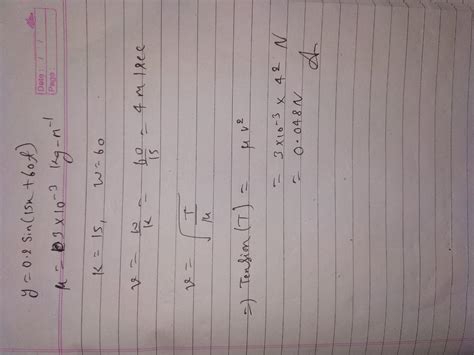 Date: / /
Page:
y = 0.2 sin(15x + 60t)
μ = 3 × 10⁻³ kg-m⁻¹
k = 15, w = 60
v = w/k = 60/15 = 4 m/sec
v = √(T/μ)
⇒) Tension (T) = μ v²
= 3 × 10⁻³ × 4² N
= 0.048 N